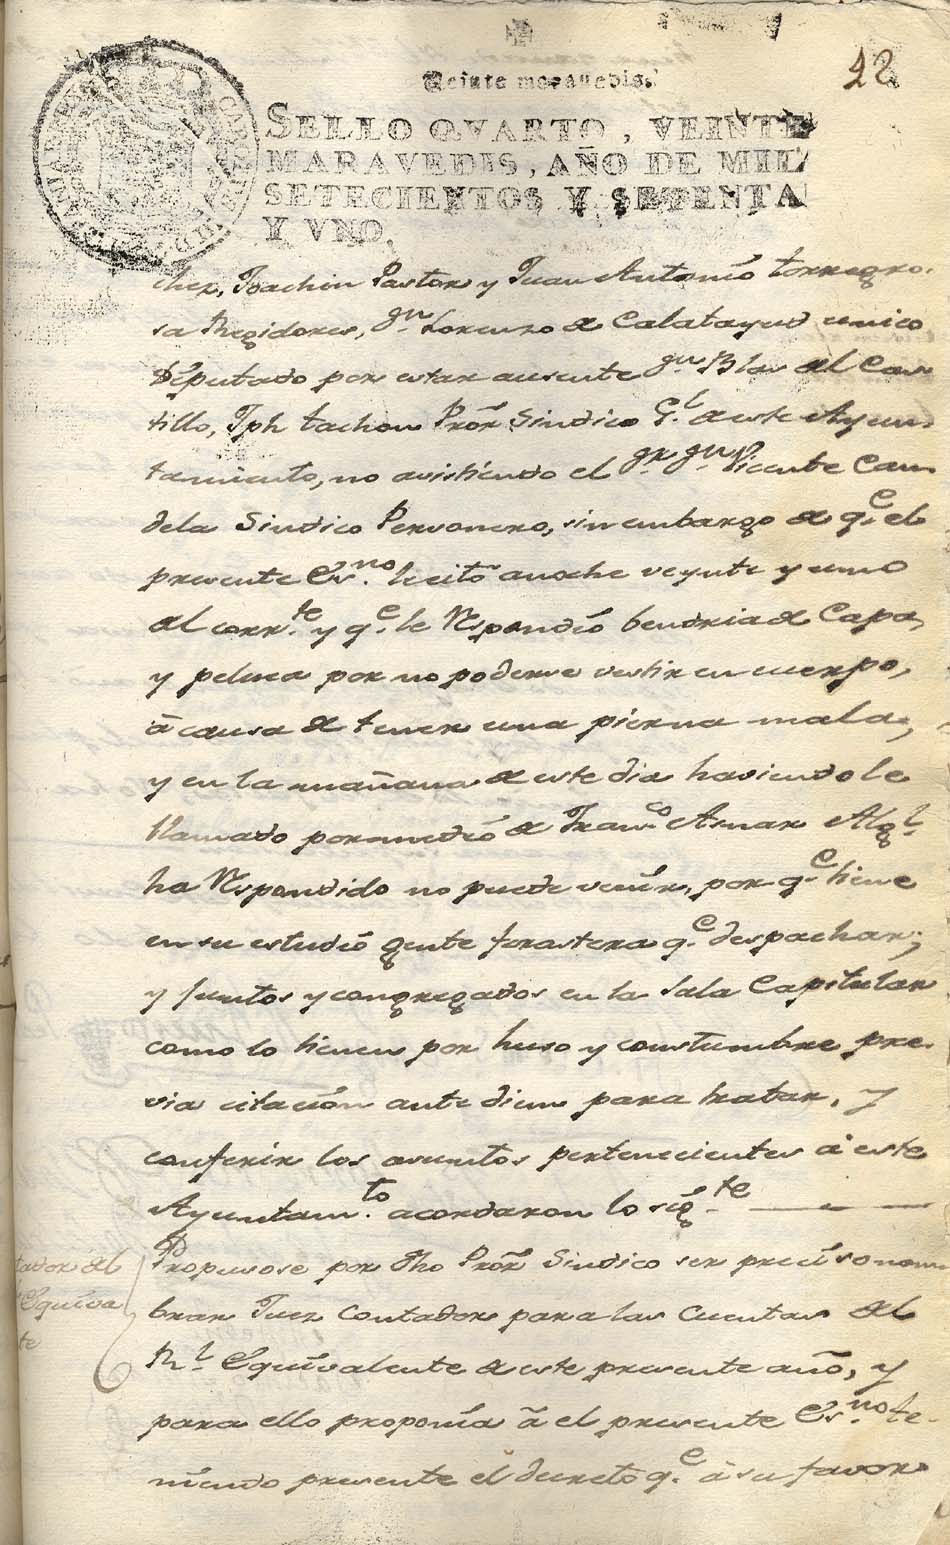 42
Veinte maravedis.
SELLO QVARTO, VEINTE
MARAVEDIS, AÑO DE MIL
SETECIENTOS Y SETENTA
Y VNO.
chez, Joachin Pastor y Juan Antonio torregro-
sa Regidores, Dn. Lorenzo de Calatayud unico
Diputado por estar ausente Dn. Blas del Cas-
tillo, Jph tachon Prõr Sindico Gl. de este Ayun-
tamiento, no asistiendo el Dr. Dn. Vicente Can-
dela Sindico Personero, sin embargo de qe. el
presente Esno. le citó anoche veynte y uno
del corrte. y qe. le Respondió bendria de Capa,
y peluca por no poderse vestir en cuerpo,
à causa de tener una pierna mala,
y en la mañana de este dia haviendole
llamado por medio de Franco. Asnar Algl.
ha Respondido no puede venir, por qe. tiene
en su estudio gente forastera qe. despachar;
y juntos y congregados en la Sala Capitular
como lo tienen por huso y constumbre pre-
via citacion ante diem para tratar, y
conferir los asuntos pertenecientes à este
Ayuntamto. acordaron lo sigte.
Propusose por dho Prõr Sindico ser preciso nom
brar Juez Contador para las Cuentas del
Rl. Equivalente de este presente año, y
para ello proponia à el presente Esno. te-
niendo presente el decreto qe. à su favor
tador del
Equiva
te